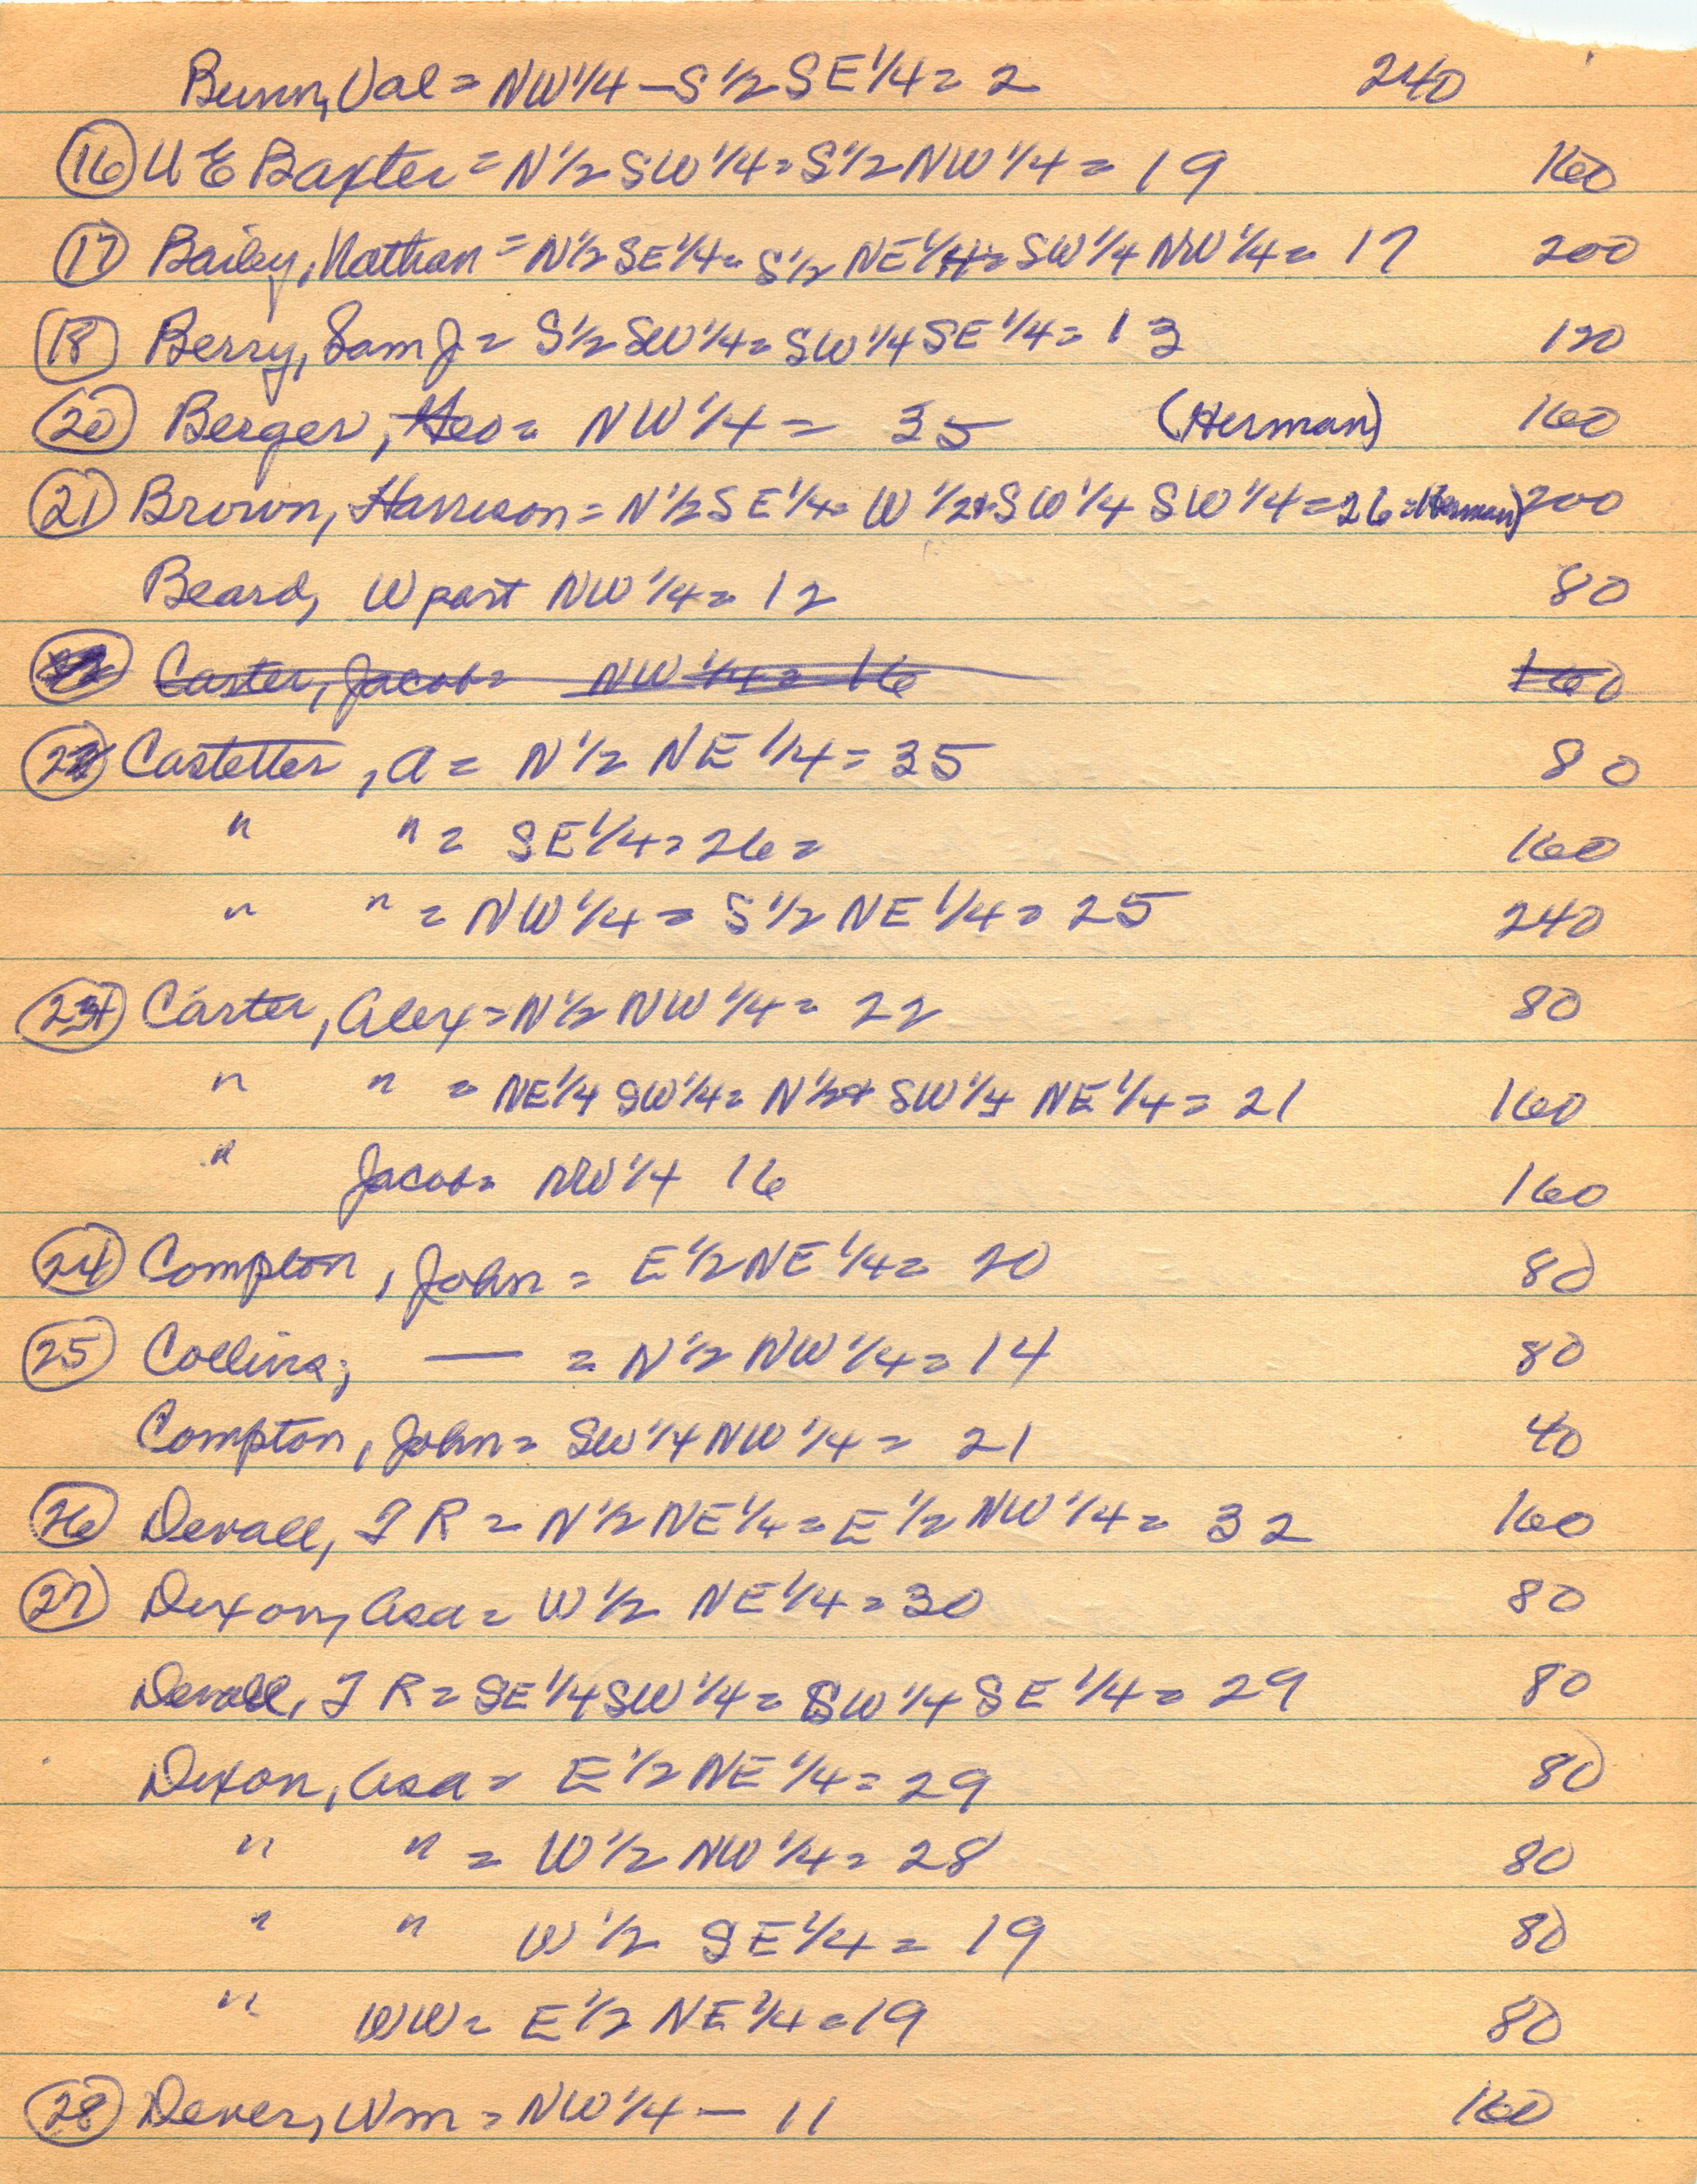 Bunn, Val = NW 1/4 - S 1/2 SE 1/4 = 2 240
16 W E Baxter = N 1/2 SW 1/4 = S 1/2 NW 1/4 = 19 160
17 Bailey, Nathan = N 1/2 SE 1/4 = S 1/2 NE 1/4 = SW 1/4 NW 1/4 = 17 200
18 Berry, Sam J = S 1/2 SW 1/4 = SW 1/4 SE 1/4 = 13 120
20 Berger, Geo = NW 1/4 = 35 (Herman) 160
21 Brown, Harrison = N 1/2 SE 1/4 = W 1/2 + SW 1/4 SW 1/4 = 26 = Herman) 200
Beard, W part NW 1/4 = 12 80
Carter, Jacob = NW 1/4 = 16 160
22 Castetter, A = N 1/2 NE 1/4 = 35 80
" " = SE 1/4 = 26 = 160
" " = NW 1/4 = S 1/2 NE 1/4 = 25 240
23 Carter, Alex = N 1/2 NW 1/4 = 22 80
" " = NE 1/4 SW 1/4 = N 1/2 + SW 1/4 NE 1/4 = 21 160
" Jacob = NW 1/4 16 160
24 Compton, John = E 1/2 NE 1/4 = 20 80
25 Collins, — = N 1/2 NW 1/4 = 14 80
Compton, John = SW 1/4 NW 1/4 = 21 40
26 Devall, J R = N 1/2 NE 1/4 = E 1/2 NW 1/4 = 32 160
27 Dixon, Asa = W 1/2 NE 1/4 = 30 80
Devall, J R = SE 1/4 SW 1/4 = SW 1/4 SE 1/4 = 29 80
Dixon, Asa = E 1/2 NE 1/4 = 29 80
" " = W 1/2 NW 1/4 = 28 80
" " W 1/2 SE 1/4 = 19 80
" WW = E 1/2 NE 1/4 = 19 80
28 Dever, Wm = NW 1/4 - 11 160